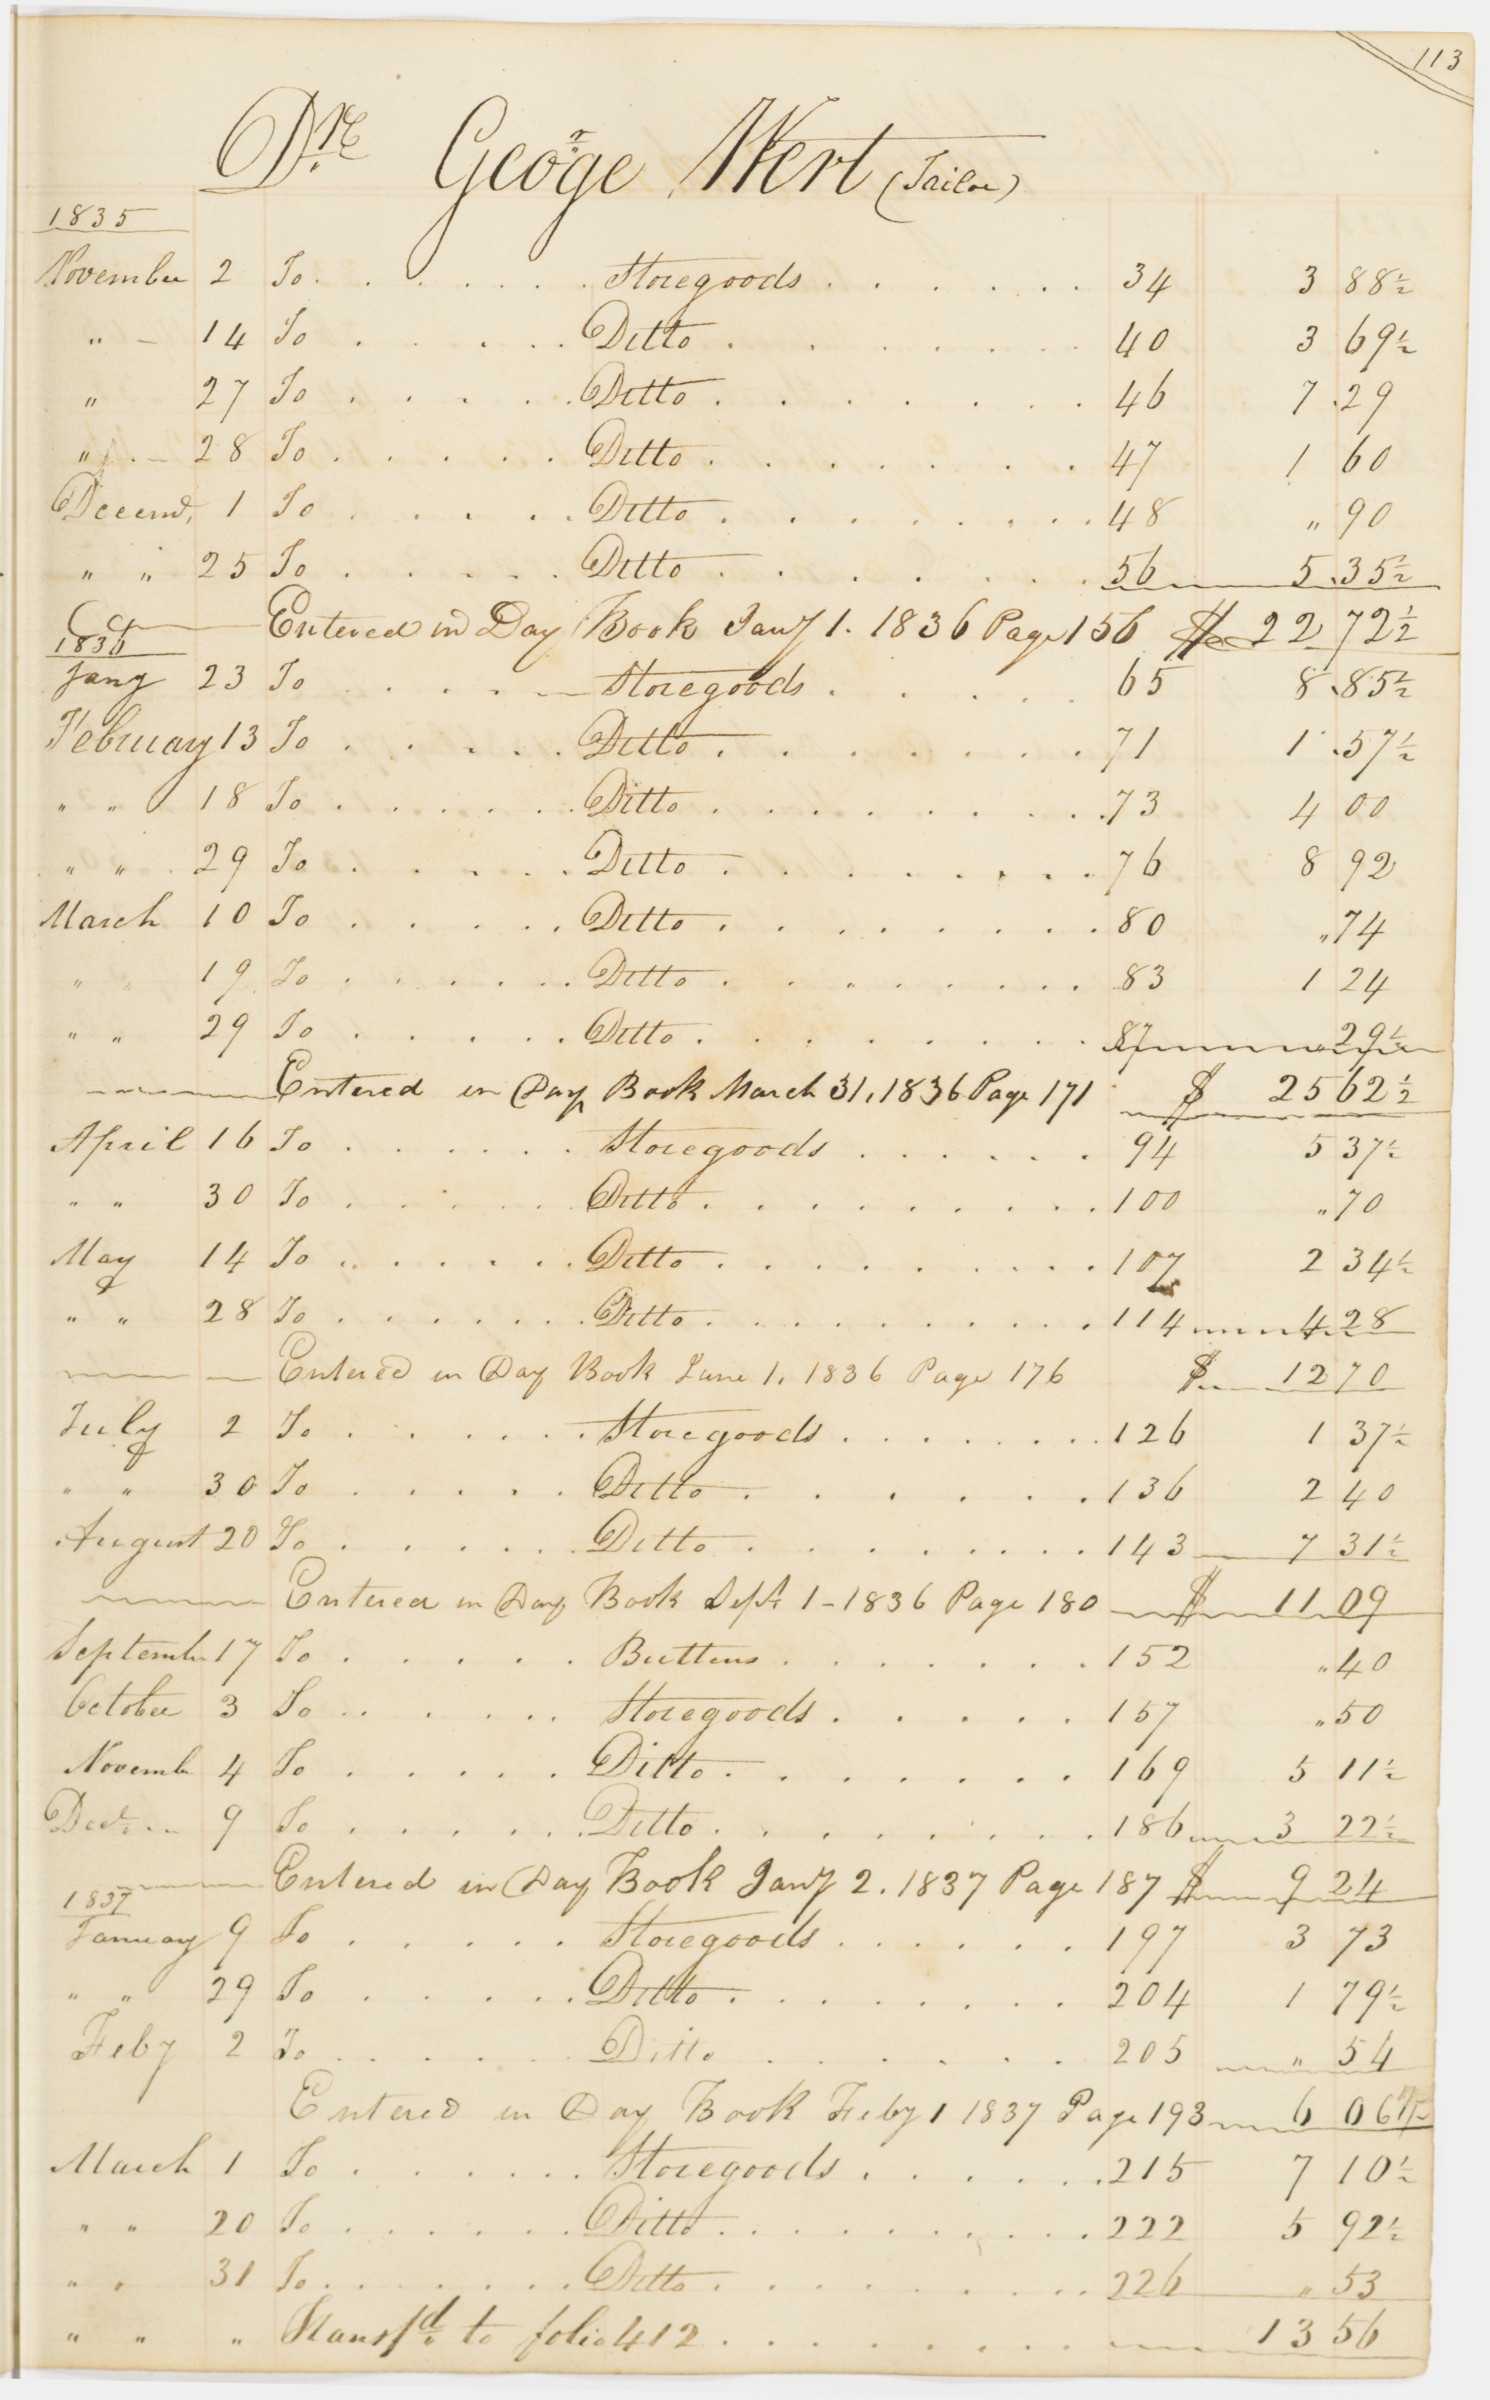 113
Dr. George Wert (Tailor)
1835
November 2 To . . . . . . Storegoods . . . . . . 34 3 88½
" - 14 To . . . . . Ditto . . . . . . . 40 3 69½
" 27 To . . . . . Ditto . . . . . . . 46 7 .29
" - 28 To . . . . . Ditto . . . . . . . 47 1 60
Decemr, 1 To . . . . . Ditto . . . . . . . 48 " 90
" " 25 To . . . . . Ditto . . . . . . . 56 5 .35½
Entered in Day Book Jany 1. 1836 Page 156 $ 22 72½
1836
Jany 23 To . . . . Storegoods . . . . . 65 8 .85½
February 13 To . . . . . Ditto . . . . . . . 71 1 .57½
" " 18 To . . . . . Ditto . . . . . . . 73 4 00
" " 29 To . . . . . Ditto . . . . . . . 76 8 92
March 10 To . . . . . Ditto . . . . . . . 80 " 74
" " 19 To . . . . . Ditto . . . . . . . 83 1 24
" " 29 To . . . . . Ditto . . . . . . . 87 " 29½
Entered in Day Book March 31, 1836 Page 171 $ 25 62½
April 16 To . . . . . Storegoods . . . . . 94 5 37½
" " 30 To . . . . . Ditto . . . . . . . 100 " 70
May 14 To . . . . . Ditto . . . . . . . 107 2 34½
" " 28 To . . . . . Ditto . . . . . . . 114 4 28
Entered in Day Book June 1, 1836 Page 176 $ 12 70
July 2 To . . . . . Storegoods . . . . . 126 1 37½
" " 30 To . . . . . Ditto . . . . . . . 136 2 40
August 20 To . . . . . Ditto . . . . . . . 143 7 31½
Entered in Day Book Sept. 1 - 1836 Page 180 $ 11 09
Septembr 17 To . . . . . Buttens . . . . . . 152 " 40
October 3 To . . . . . Storegoods . . . . . 157 " 50
Novembr 4 To . . . . . Ditto . . . . . . . 169 5 11½
Decr. . . 9 To . . . . . Ditto . . . . . . . 186 3 22½
Entered in Day Book Jany 2. 1837 Page 187 $ 9 24
1837
January 9 To . . . . . Storegoods . . . . . 197 3 73
" " 29 To . . . . . Ditto . . . . . . . 204 1 79½
Feby 2 To . . . . . Ditto . . . . . . . 205 " 54
Entered in Day Book Feby 1 1837 Page 193 6 06½
March 1 To . . . . . Storegoods . . . . . 215 7 10½
" " 20 To . . . . . Ditto . . . . . . . 222 5 92½
" " 31 To . . . . . Ditto . . . . . . . 226 " 53
" " " Transfd. to folio 412 . . . . . . . 13 56